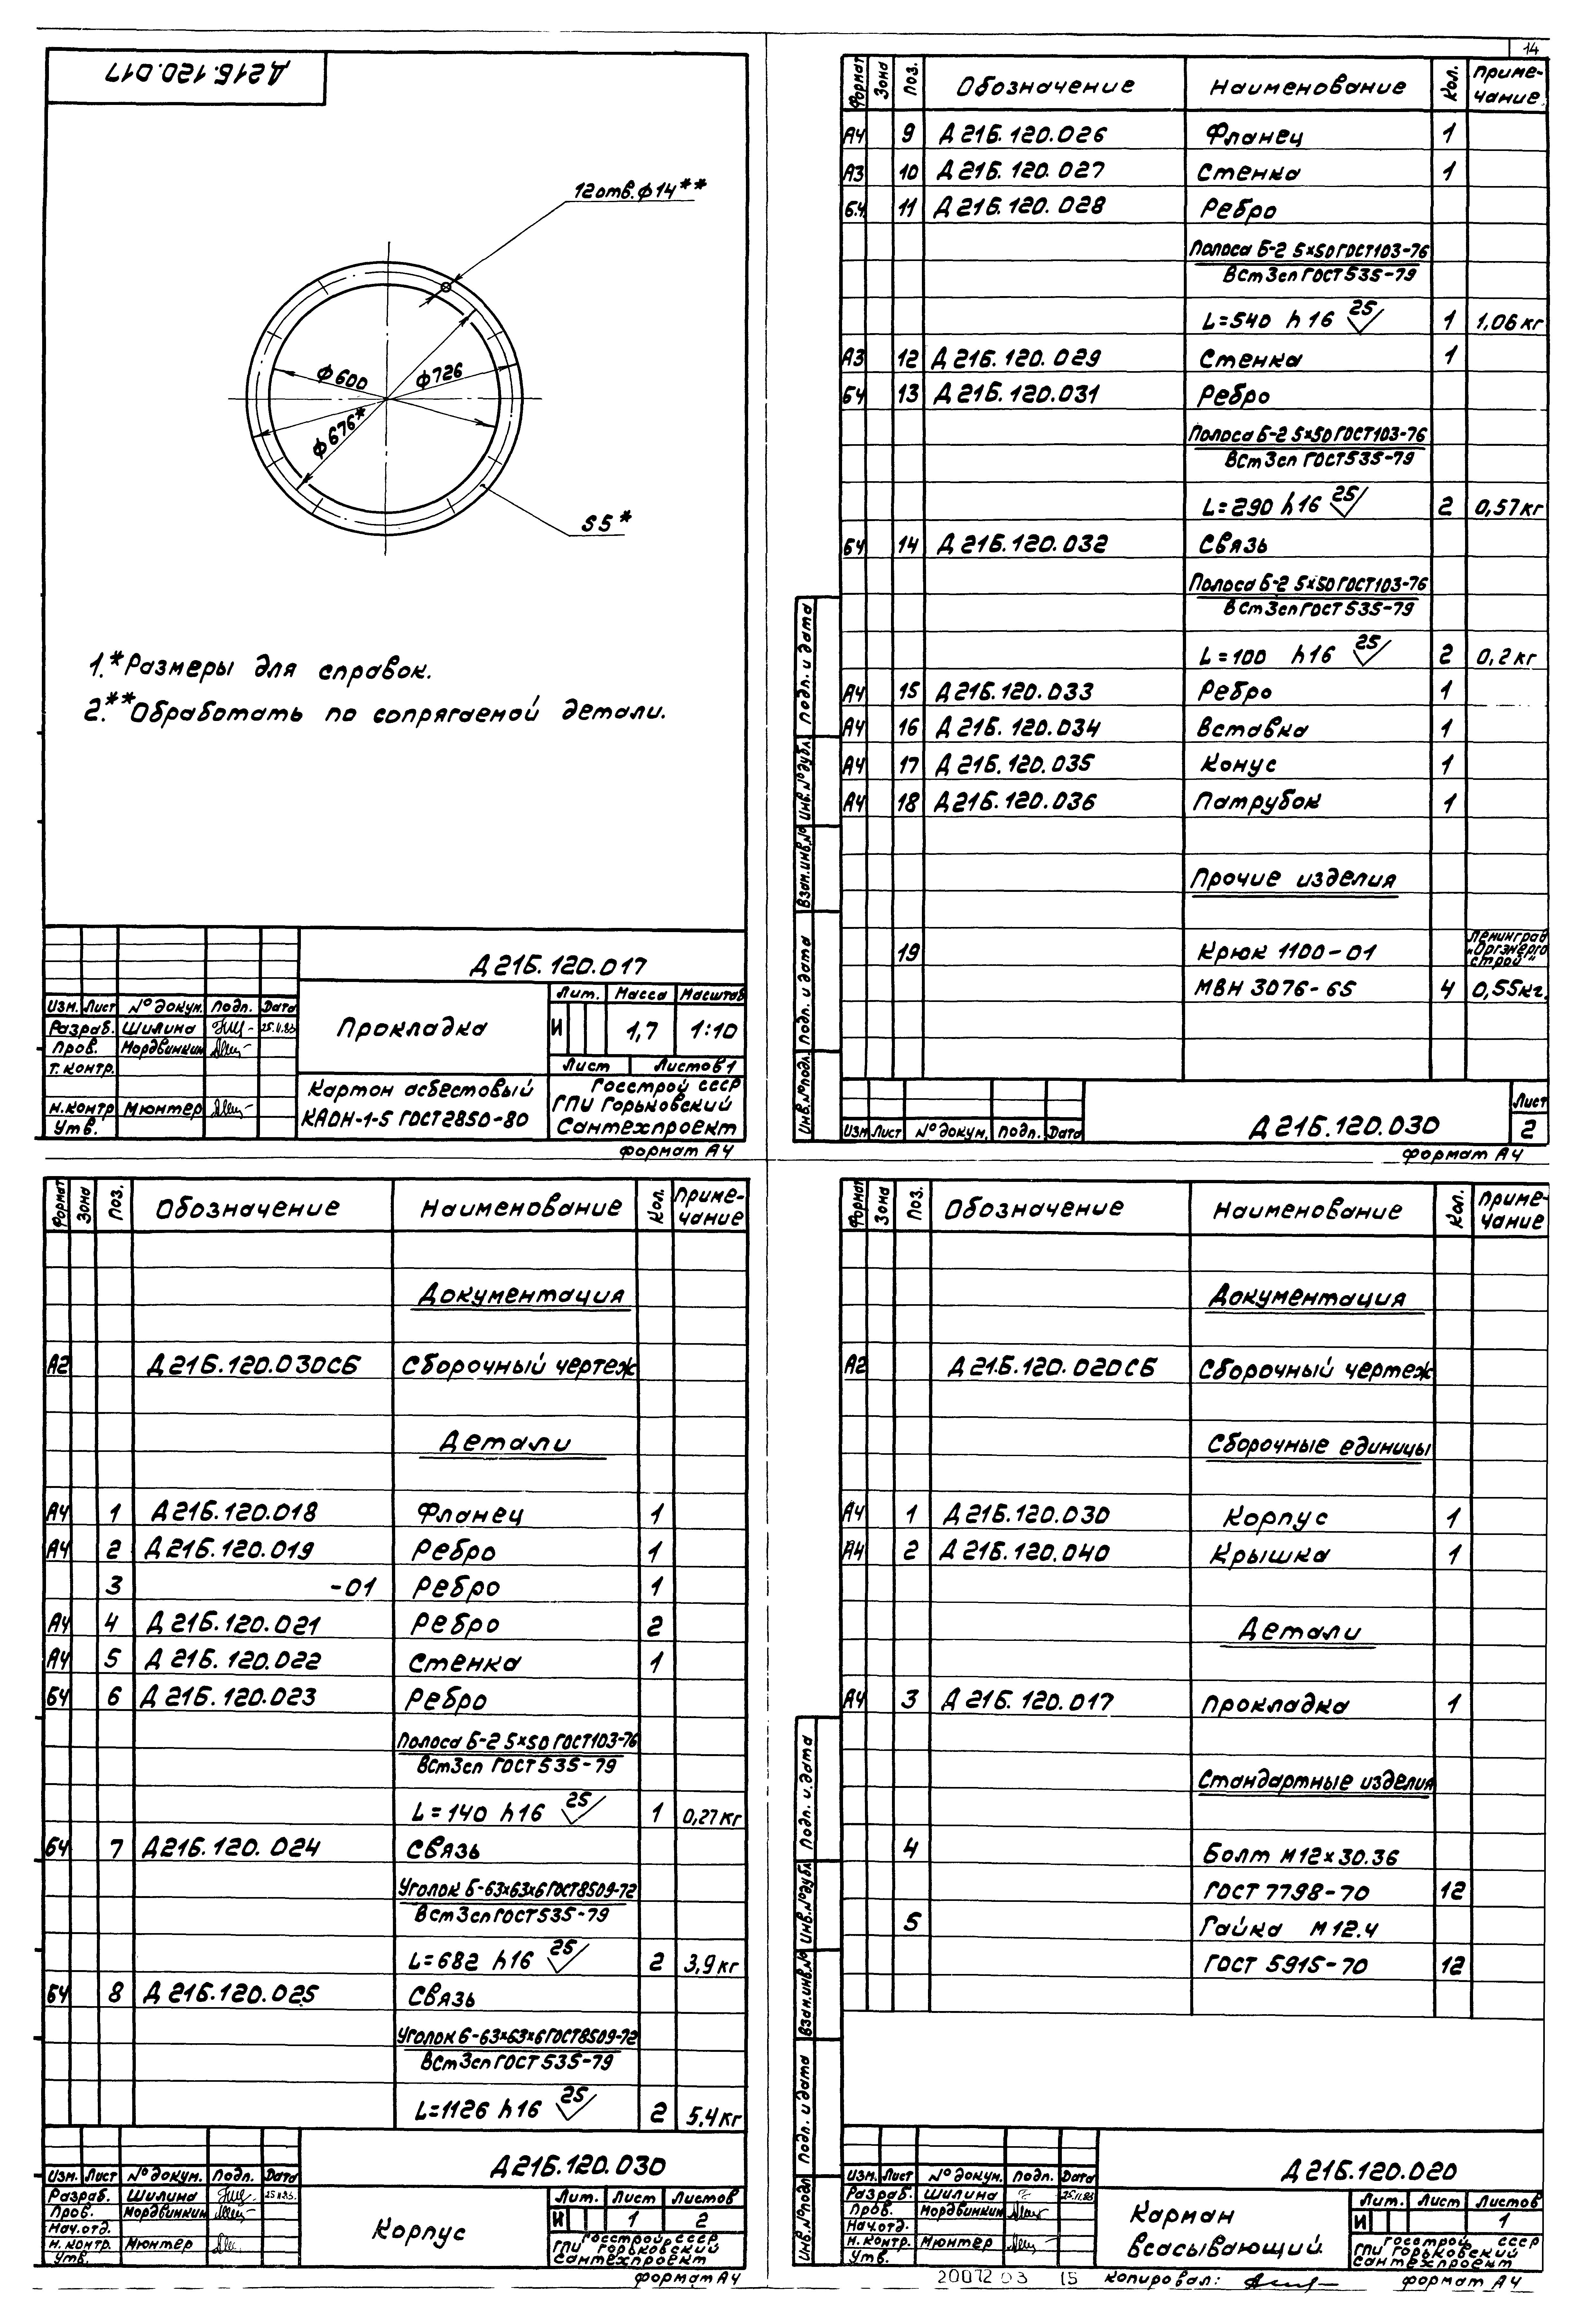 14
Д21Б.120.017
12отв.ф14**
ф600
ф726
ф676*
S5*
1.*Размеры для справок.
2.**Обработать по сопрягаемой детали.
Д21Б.120.017
Изм. Лист №докум. Подп. Дата
Разраб. Шилина 25.11.83
Пров. Мордвинкин
Т.контр.
Н.контр Мюнтер
Утв.
Прокладка
Лит. Масса Масштаб
И 1,7 1:10
Лист Листов 1
Картон асбестовый
КАОН-1-5 ГОСТ2850-80
Госстрой СССР
ГПИ Горьковский
Сантехпроект
формат А4
Формат Зона Поз. Обозначение Наименование Кол. Приме-
чание
А4 9 Д21Б.120.026 Фланец 1
А3 10 Д21Б.120.027 Стенка 1
Б.4 11 Д21Б.120.028 Ребро
Полоса Б-2 5×50 ГОСТ103-76
ВСт3сп ГОСТ535-79
L=540 h16 25 1 1,06кг
А3 12 Д21Б.120.029 Стенка 1
Б4 13 Д21Б.120.031 Ребро
Полоса Б-2 5×50 ГОСТ103-76
ВСт3сп ГОСТ535-79
L=290 h16 25 2 0,57кг
Б4 14 Д21Б.120.032 Связь
Полоса Б-2 5×50 ГОСТ103-76
ВСт3сп ГОСТ535-79
L=100 h16 25 2 0,2кг
А4 15 Д21Б.120.033 Ребро 1
А4 16 Д21Б.120.034 Вставка 1
А4 17 Д21Б.120.035 Конус 1
А4 18 Д21Б.120.036 Патрубок 1
Прочие изделия
19 Крюк 1100-01 Ленинград
"Оргэнерго
строй"
МВН 3076-65 4 0,55кг.
Инв.№подл. Подп. и дата Взам.инв.№ Инв.№дубл. Подп. и дата
Изм Лист №докум. Подп. Дата
Д21Б.120.030
Лист
2
формат А4
Формат Зона Поз. Обозначение Наименование Кол. Приме-
чание
Документация
А2 Д21Б.120.030СБ Сборочный чертеж
Детали
А4 1 Д21Б.120.018 Фланец 1
А4 2 Д21Б.120.019 Ребро 1
3 -01 Ребро 1
А4 4 Д21Б.120.021 Ребро 2
А4 5 Д21Б.120.022 Стенка 1
Б4 6 Д21Б.120.023 Ребро
Полоса Б-2 5×50 ГОСТ103-76
ВСт3сп ГОСТ535-79
L=140 h16 25 1 0,27кг
Б4 7 Д21Б.120.024 Связь
Уголок Б-63×63×6 ГОСТ8509-72
ВСт3сп ГОСТ535-79
L=682 h16 25 2 3,9кг
Б4 8 Д21Б.120.025 Связь
Уголок Б-63×63×6 ГОСТ8509-72
ВСт3сп ГОСТ535-79
L=1126 h16 25 2 5,4кг
Д21Б.120.030
Изм. Лист №докум. Подп. Дата
Разраб. Шилина
Пров. Мордвинкин
Нач.отд.
Н.контр. Мюнтер
Утв.
Корпус
Лит. Лист Листов
И 1 2
Госстрой СССР
ГПИ Горьковский
Сантехпроект
формат А4
Формат Зона Поз. Обозначение Наименование Кол. Приме-
чание
Документация
А2 Д21Б.120.020СБ Сборочный чертеж
Сборочные единицы
А4 1 Д21Б.120.030 Корпус 1
А4 2 Д21Б.120.040 Крышка 1
Детали
А4 3 Д21Б.120.017 Прокладка 1
Стандартные изделия
4 Болт М12×30.36
ГОСТ 7798-70 12
5 Гайка М12.4
ГОСТ 5915-70 12
Инв.№подл Подп. и дата Взам.инв.№ Инв.№дубл Подп. и дата
Д21Б.120.020
Изм. Лист №докум. Подп. Дата
Разраб. Шилина 25.11.83
Пров. Мордвинкин
Нач.отд.
Н.контр. Мюнтер
Утв.
Карман
Всасывающий
Лит. Лист Листов
И 1
Госстрой СССР
ГПИ Горьковский
Сантехпроект
20072 03 15 Копировал: формат А4